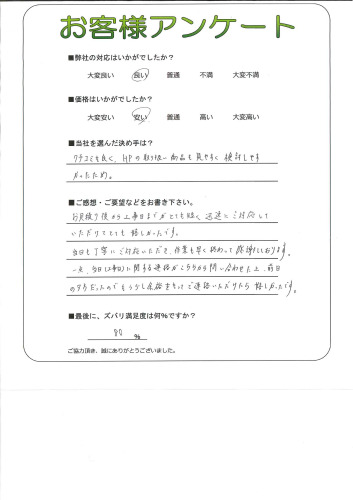 お客様アンケート
■弊社の対応はいかがでしたか？
大変良い 良い 普通 不満 大変不満
■価格はいかがでしたか？
大変安い 安い 普通 高い 大変高い
■当社を選んだ決め手は？
クチコミも良く、HPの取り扱い商品も見やすく検討しやす
かったため。
■ご感想・ご要望などをお書き下さい。
お見積り後から工事日までがとても短く、迅速にご対応して
いただけてとても嬉しかったです。
当日も丁寧にご対応いただき、作業も早く終わって感謝しております。
一点、当日(工事日)に関する連絡がこちらから問い合わせた上、前日
の夕方だったのでもう少し余裕をもってご連絡いただけたら嬉しかったです。
■最後に、ズバリ満足度は何%ですか？
80 %
ご協力頂き、誠にありがとうございました。